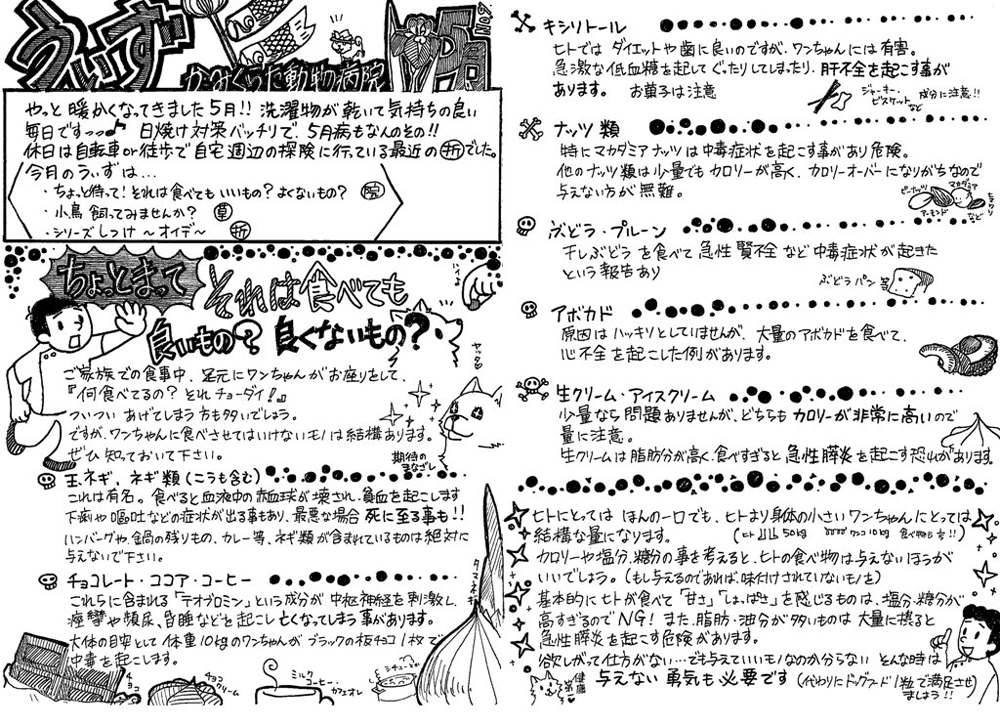 うぃず
5月
かみくうた動物病院
やっと暖かくなってきました5月!! 洗濯物が乾いて気持ちの良い
毎日ですっっ♪ 日焼け対策バッチリで、5月病もなんのその!!
休日は自転車or徒歩で自宅週辺の探険に行っている最近の折でした。
今月のうぃずは…
・ちょっと待って!それは食べてもいいもの?よくないもの? 院
・小鳥飼ってみませんか? 草
・シリーズしつけ ~オイデ~ 折
ちょっとまって
それは食べても
良いもの?良くないもの?
ご家族での食事中、足元にワンちゃんがお座りをして、
『何食べてるの?それチョーダイ!』
ついついあげてしまう方も多いでしょう。
ですが、ワンちゃんに食べさせてはいけないモノは結構あります。
ぜひ知っておいて下さい。
ヤッタ
期待の
まなざし
玉ネギ、ネギ類(こうも含む)
これは有名。食べると血液中の赤血球が壊され、貧血を起こします
下痢や嘔吐などの症状が出る事もあり、最悪な場合 死に至る事も!!
ハンバーグや、鍋の残りもの、カレー等、ネギ類が含まれているものは絶対に
与えないで下さい。
タマネギ
チョコレート・ココア・コーヒー
これらに含まれる「テオブロミン」という成分が中枢神経を刺激し、
痙攣や頻尿、昏睡などを起こし亡くなってしまう事があります。
大体の目安として体重10kgのワンちゃんがブラックの板チョコ1枚で
中毒を起こします。
チョコ
チョコ
クリーム
ミルク
コーヒー・
カフェオレ
キシリトール
ヒトではダイエットや歯に良いのですが、ワンちゃんには有害。
急激な低血糖を起してぐったりしてしまったり、肝不全を起こす事が
あります。 お菓子は注意
ジャーキー・
ビスケット など
成分に注意!!
ナッツ類
特にマカダミアナッツは中毒症状を起こす事があり危険。
他のナッツ類は少量でもカロリーが高く、カロリーオーバーになりがちなので
与えない方が無難。
ピーナッツ
マカダミア
アーモンド
など
ぶどう・プルーン
干しぶどうを食べて急性賢不全など中毒症状が起きた
という報告あり
ぶどうパン等
アボカド
原因はハッキリとしていませんが、大量のアボカドを食べて、
心不全を起こした例があります。
生クリーム・アイスクリーム
少量なら問題ありませんが、どちらもカロリーが非常に高いので
量に注意。
生クリームは脂肪分が高く、食べすぎると急性膵炎を起こす恐れがあります。
ヒトにとってはほんの一口でも、ヒトより身体の小さいワンちゃんにとっては
結構な量になります。
カロリーや塩分、糖分の事を考えると、ヒトの食べ物は与えないほうが
いいでしょう。(もし与えるのであれば、味付けされていないモノを)
基本的にヒトが食べて「甘さ」「しょっぱさ」を感じるものは、塩分・糖分が
高すぎるのでNG!また、脂肪・油分が多いものは大量に摂ると
急性膵炎を起こす危険があります。
欲しがって仕方がない…でも与えていいモノなのか分らない とんな時は
与えない勇気も必要です(代わりにドッグフード1粒で満足させ
ましょう!!)
健康
第一